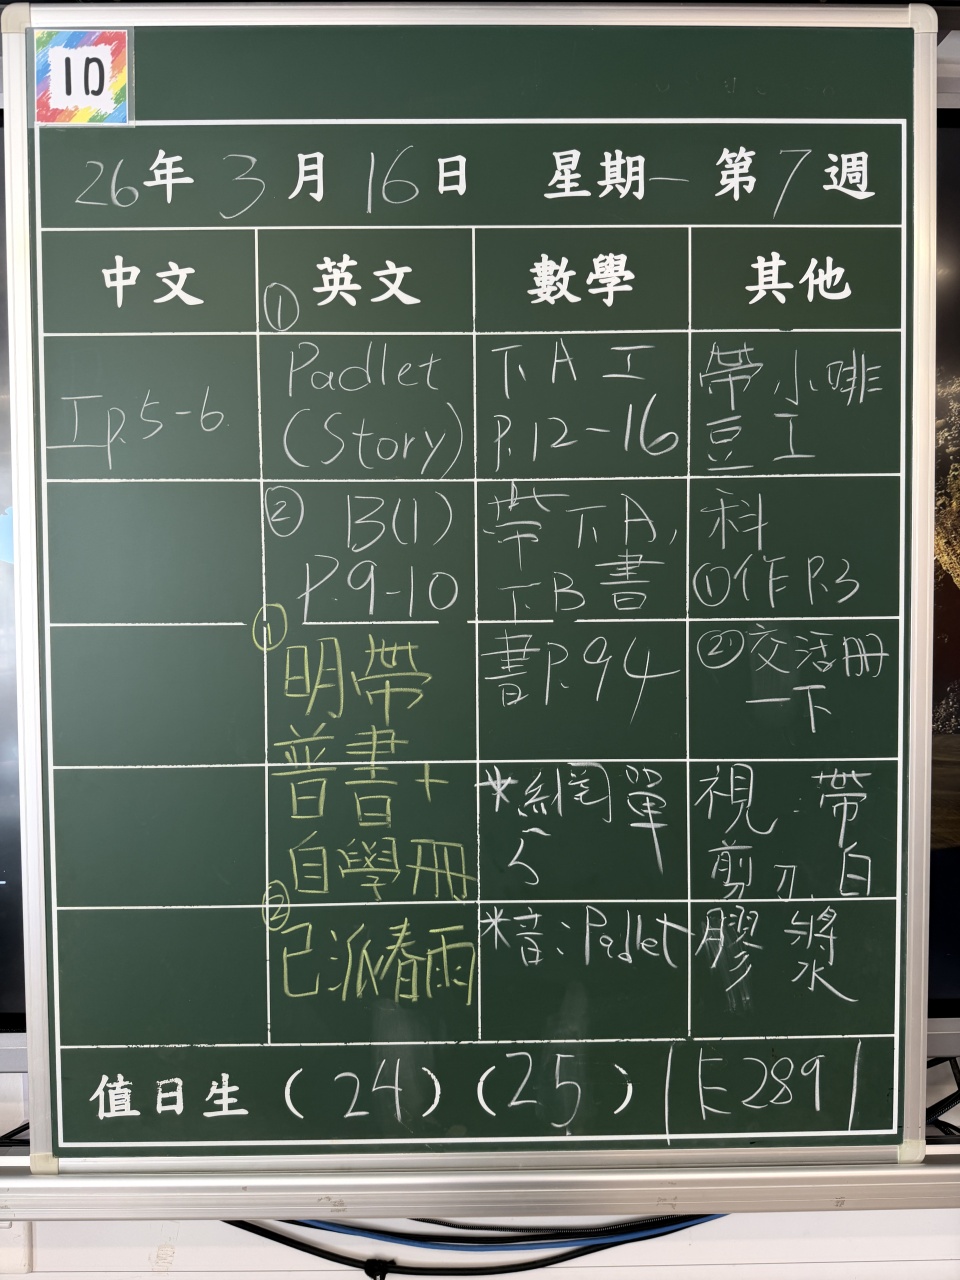 1D
26年 3月 16日 星期一 第7週
中文 英文 數學 其他
工p.5-6
①
Padlet
(Story)
② B(1)
P.9-10
①
明帶
普書+
自學冊
②
已派春雨
下A工
P.12-16
帶下A,
下B書
書P.94
*網單
5
*音:Padlet
帶小啡
豆工
科
①作P.3
②交活冊
一下
視:帶
剪刀 白
膠漿
水
值日生 (24) (25) 長289